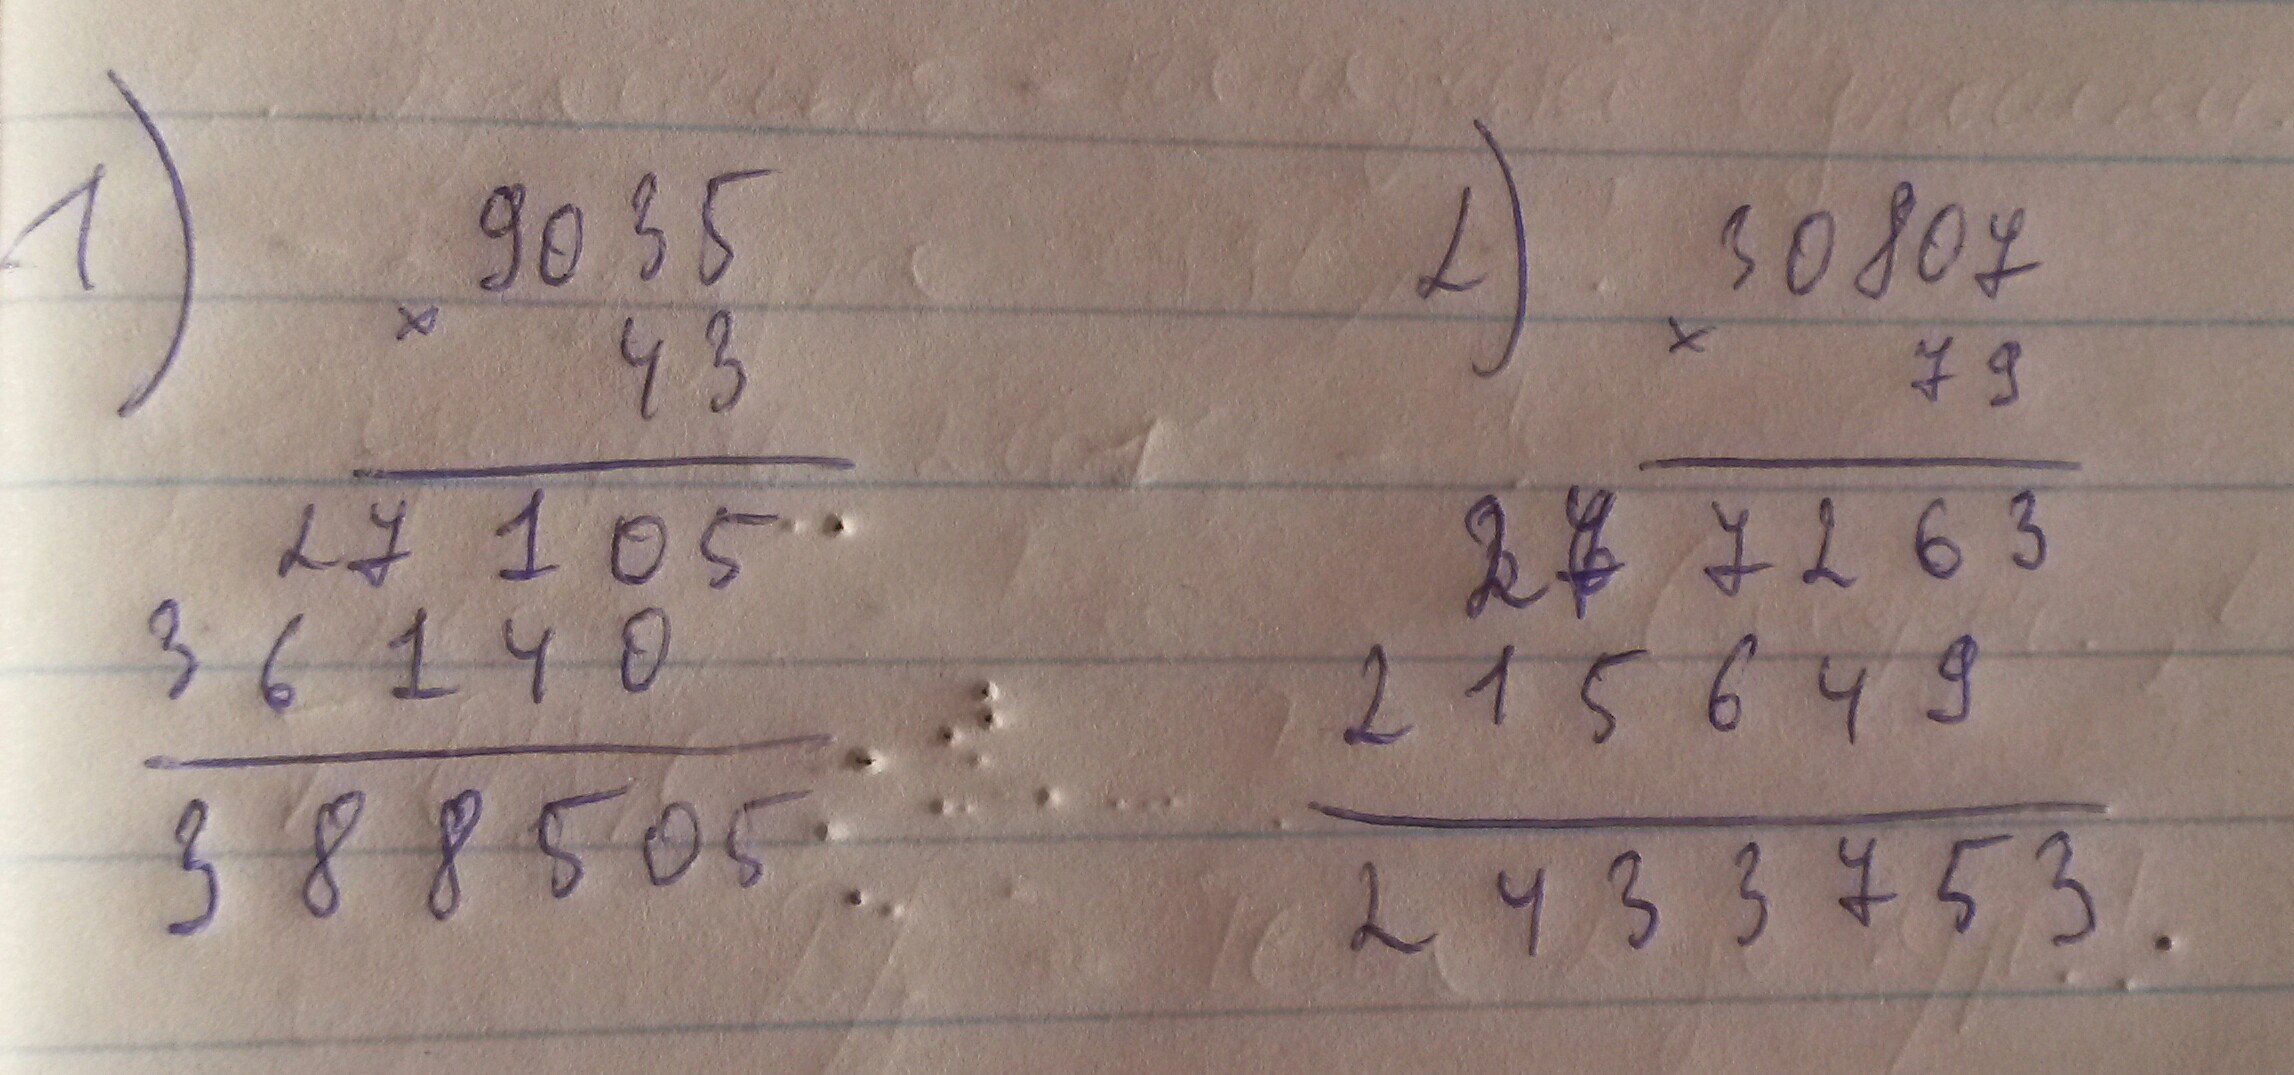 1)
9035
×
43
27105
36140
388505
2)
30807
×
79
277263
215649
2433753.